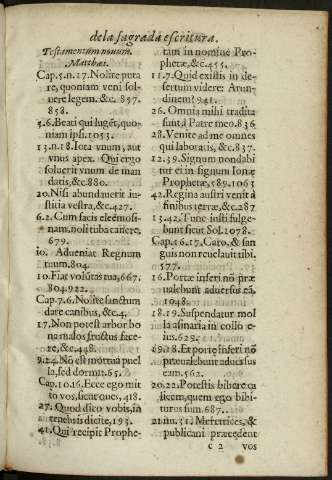 de la sagrada escritura.
Testamentum nouum.
Matthæi.
Cap.5.n.17. Nolite puta
re, quoniam veni sol-
uere legem. &c. 857.
858.
5.6. Beati qui lugēt, quo-
niam ipsi. 1053.
13.n.18. Iota vnum, aut
vnus apex. Qui ergo
soluerit vnum de man
datis, &c. 880.
20. Nisi abundauerit iu-
stitia vestra, &c. 427.
6.2. Cum facis eleemosi-
nam. noli tuba canere,
679.
10. Adueniat Regnum
tuum. 804.
10. Fiat volūtas tua, 667.
804. 922.
Cap.7.6. Nolite sanctum
dare canibus, &c. 4.
17. Non potest arbor bo
na malos fructus face-
re, &c. 448.
9.24. Nō est mortua puel
la, sed dormit. 65.
Cap.10.16. Ecce ego mit
to vos, sicut oues, 418.
27. Quod dico vobis, in
tenebris dicite, 193.
41. Qui recipit Prophe-
tam in nomine Pro-
phetæ, &c. 455.
11.7. Quid existis in de-
sertum videre: Arun-
dinem? 941.
26. Omnia mihi tradita
sunt à Patre meo. 836
28. Venite ad me omnes
qui laboratis, &c. 837.
12.39. Signum non dabi
tur ei in signum Ionæ
Prophetæ, 589. 1063
42. Regina austri venit à
finibus terræ, &c. 287
13.42. Tunc iusti fulge-
bunt sicut Sol. 1078.
Cap.16.17. Caro, & san
guis non reuelauit tibi.
577.
16. Portæ inferi nō præ
ualebunt aduersus eā.
1048.
18.19. Suspendatur mol
la asinaria in collo e-
ius. 629.
18. Et portę inferi nō
præualebunt aduersus
eam. 562.
20.22. Potestis bibere ca
licem, quem ego bibi-
turus sum. 687.
21.nu.31. Meretrices, &
publicani præcedent
C 2 vos